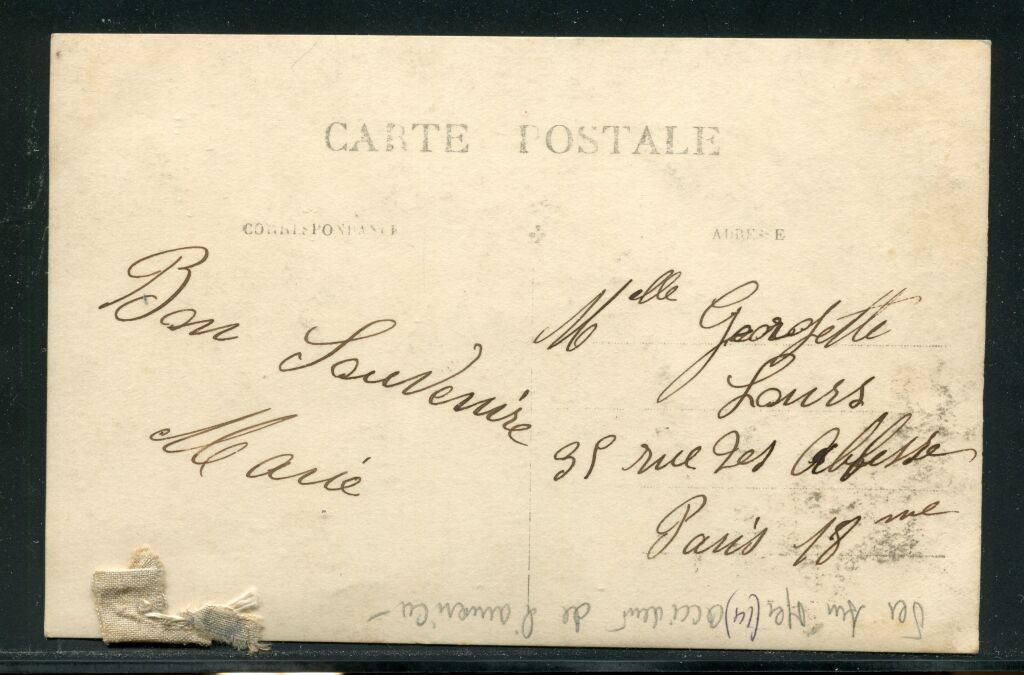 CARTE POSTALE
CORRESPONDANCE
ADRESSE
Bon Souvenire
Marie
Mlle Georgette
Lours
35 rue des Abbesse
Paris 18me
accident de l'america